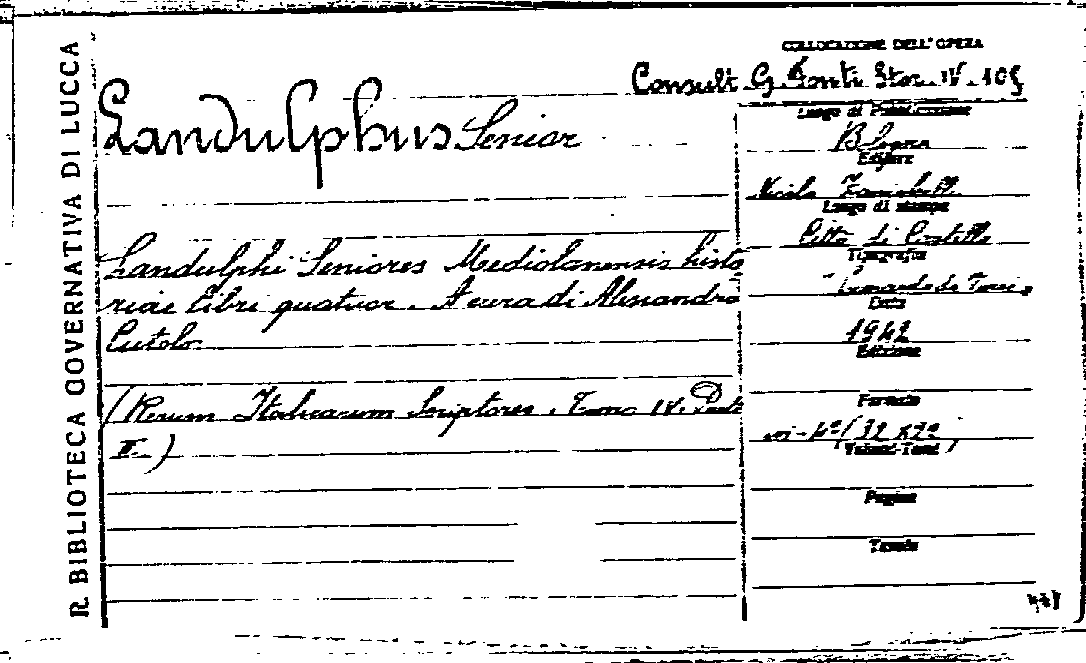 R. BIBLIOTECA GOVERNATIVA DI LUCCA
COLLOCAZIONE DELL'OPERA
Consult. G. Fonti Stor. IV. 105
Landulphus Senior
Luogo di Pubblicazione
Bologna
Editore
Nicola Zanichelli
Luogo di stampa
Città di Castello
Tipografia
Leonardo da Vinci
Data
1942
Edizione
Formato
in-4° (32 x 22)
(Volumi-Tomi)
Pagine
Tavole
Landulphi Seniores Mediolanensis histo
riae libri quatuor. A cura di Alessandro
Cutolo.
(Rerum Italicarum Scriptores. Tomo IV. Parte
II.)